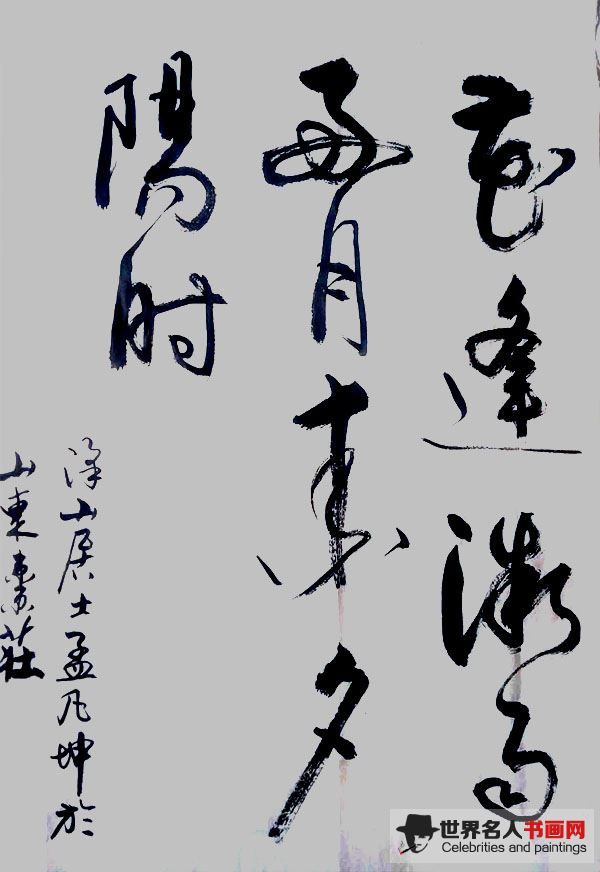 花逢微雨
月来夕
陽时
山居士孟凡坤於
山東棗莊
世界名人书画网
Celebrities and paintings